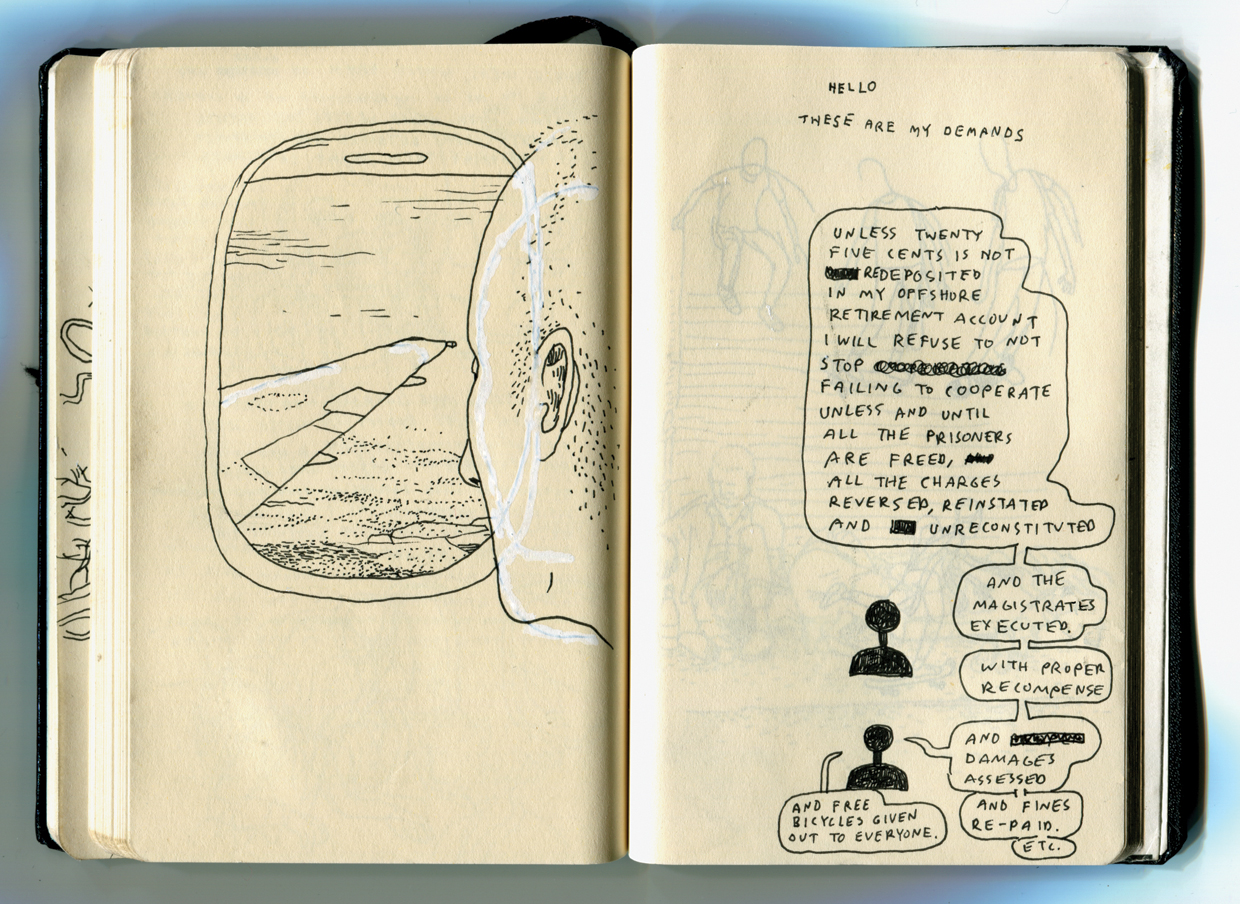 HELLO
THESE ARE MY DEMANDS
UNLESS TWENTY
FIVE CENTS IS NOT
REDEPOSITED
IN MY OFFSHORE
RETIREMENT ACCOUNT
I WILL REFUSE TO NOT
STOP
FAILING TO COOPERATE
UNLESS AND UNTIL
ALL THE PRISONERS
ARE FREED,
ALL THE CHARGES
REVERSED, REINSTATED
AND UNRECONSTITUTED
AND THE
MAGISTRATES
EXECUTED.
WITH PROPER
RECOMPENSE
AND
DAMAGES
ASSESSED
AND FINES
RE-PAID.
ETC.
AND FREE
BICYCLES GIVEN
OUT TO EVERYONE.